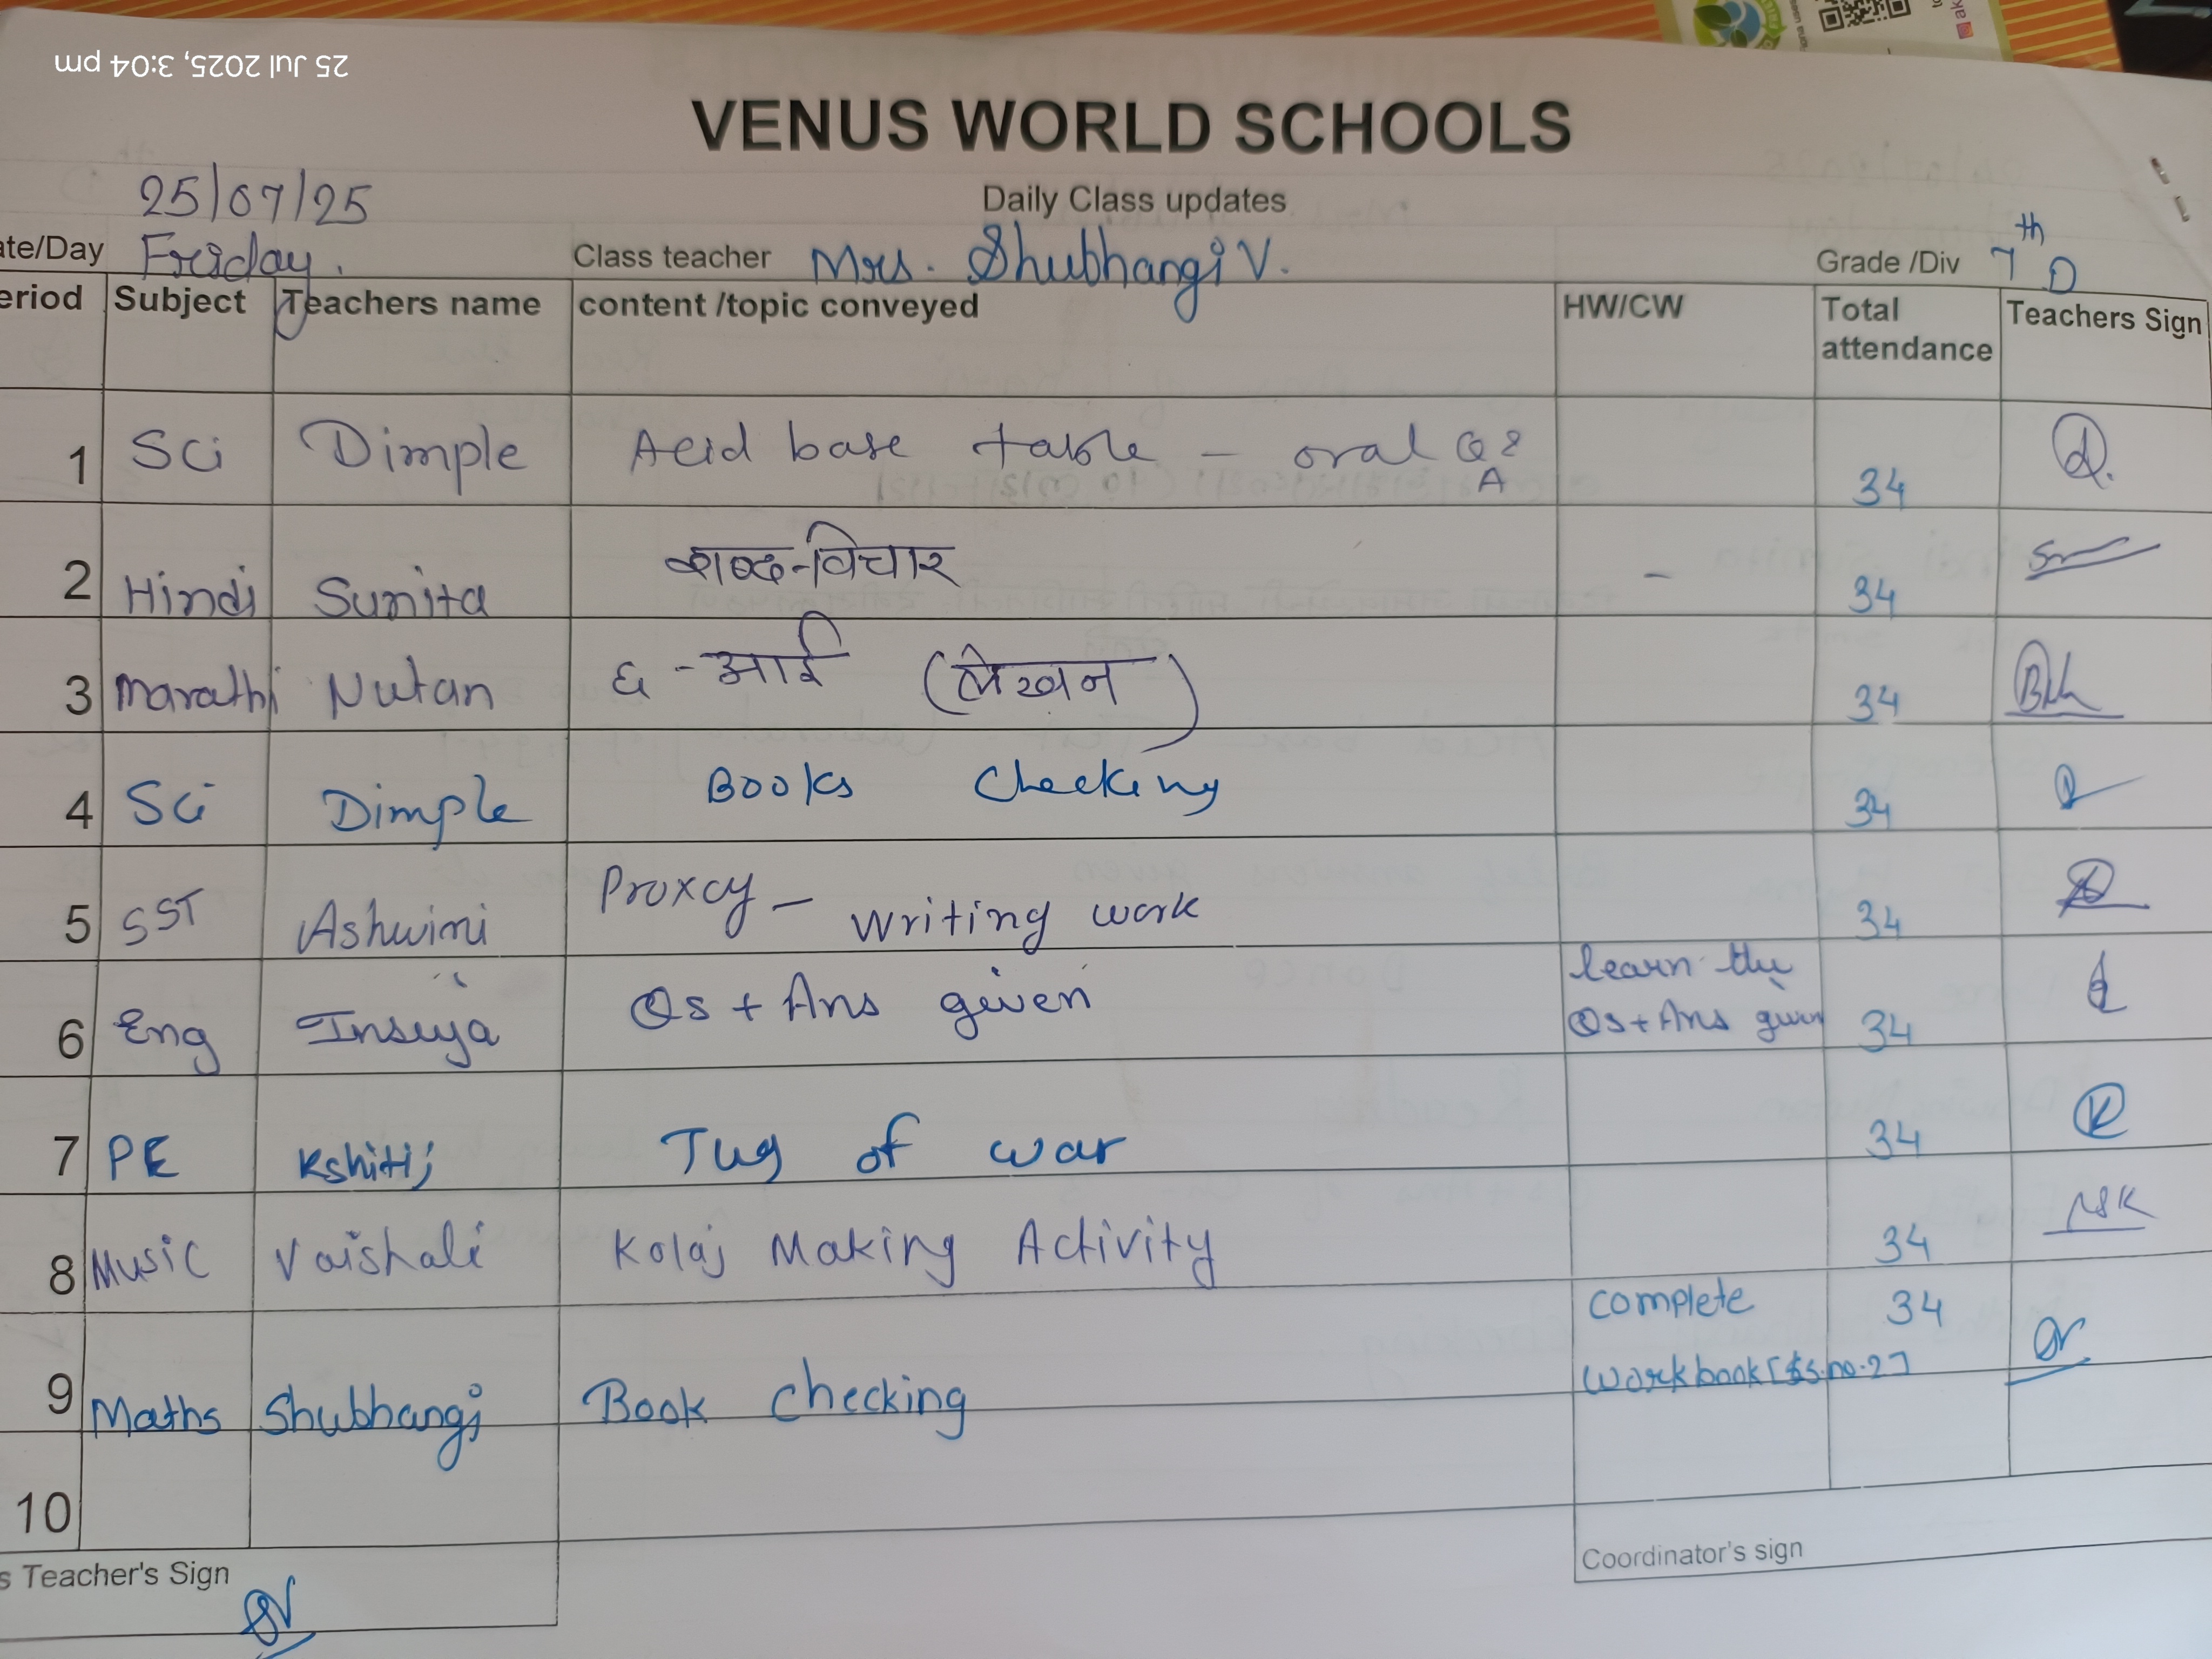 25 Jul 2025, 3:04 pm
VENUS WORLD SCHOOLS
Daily Class updates
25/07/25
ate/Day Friday. Class teacher Mrs. Shubhangi V. Grade /Div 7th D
eriod Subject Teachers name content /topic conveyed HW/CW Total attendance Teachers Sign
1 Sci Dimple Acid base table - oral Q & A 34
2 Hindi Sunita शब्द-विचार - 34
3 Marathi Nutan ६ - आई (लेखन) 34
4 Sci Dimple Books Checking 34
5 SST Ashwini Proxcy - writing work 34
6 Eng Insiya Qs + Ans given learn the Qs + Ans given 34
7 PE Kshitij Tug of war 34
8 Music Vaishali Kolaj Making Activity 34
9 Maths Shubhangi Book checking complete workbook [s.no.2] 34
10
s Teacher's Sign
Coordinator's sign